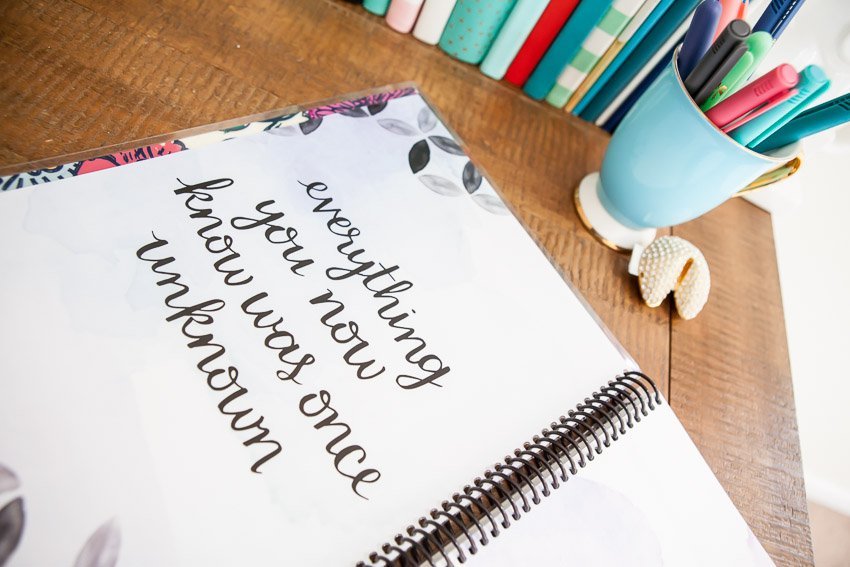 everything
you now
know was once
unknown